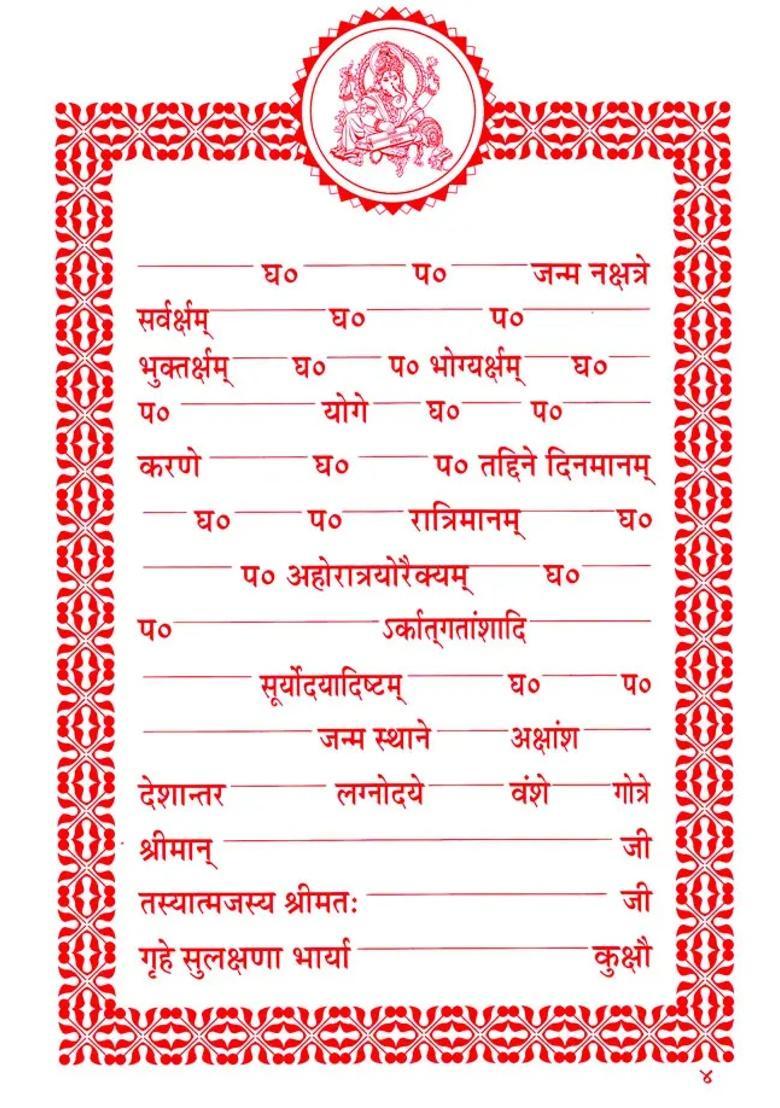 ______ घ० ______ प० ______ जन्म नक्षत्रे
सर्वर्क्षम् ______ घ० ______ प० ______
भुक्तर्क्षम् ____ घ० ____ प० भोग्यर्क्षम् ____ घ० ____
प० ______ योगे ____ घ० ____ प० ______
करणे ______ घ० ______ प० तद्दिने दिनमानम्
____ घ० ______ प० ______ रात्रिमानम् ______ घ०
______ प० अहोरात्रयोरैक्यम् ______ घ० ______
प० ______ ऽर्कात्गतांशादि ______
______ सूर्योदयादिष्टम् ______ घ० ______ प०
______ जन्म स्थाने ______ अक्षांश ______
देशान्तर ______ लग्नोदये ______ वंशे ______ गोत्रे
श्रीमान् ______ जी
तस्यात्मजस्य श्रीमतः ______ जी
गृहे सुलक्षणा भार्या ______ कुक्षौ
४